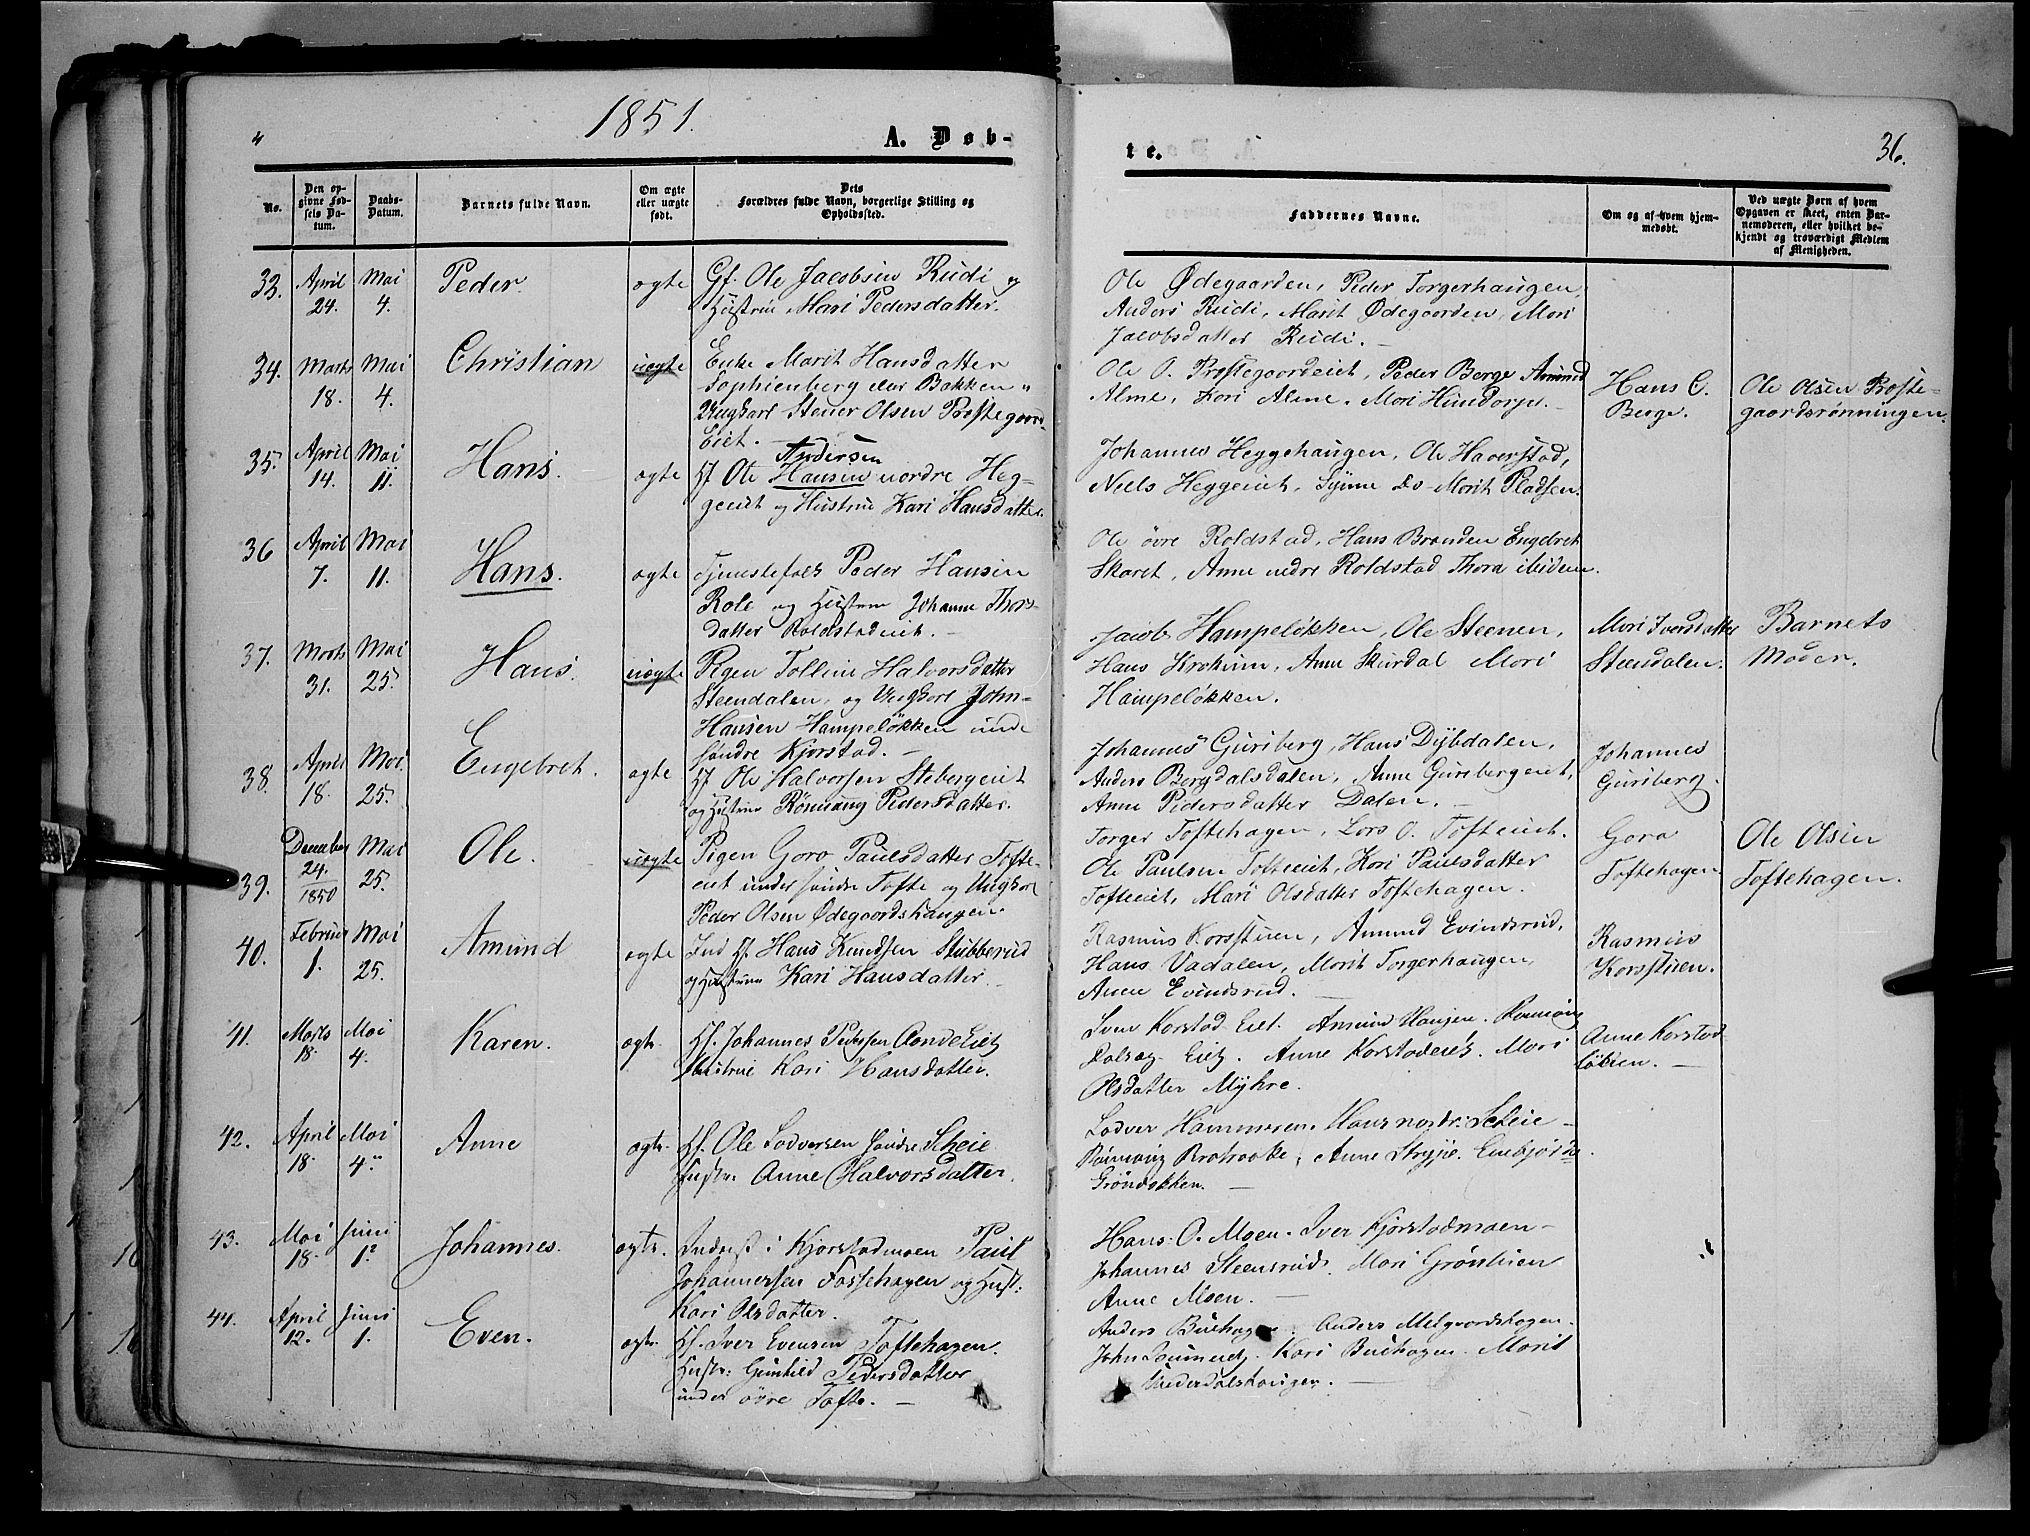 1851.
A. Døb-
No.
Den op-
givne Fød-
sels Da-
tum.
Daabs-
Datum.
Barnets fulde Navn.
Om ægte
eller uægte
født.
Dets
Forældres fulde Navn, borgerlige Stilling og
Opholdssted.
33.
April
24.
Mai
4.
Peder.
ægte
Gf. Ole Jacobsen Rudi og
Hustrue Mari Pedersdatter.
34.
Marts
18.
Mai
4.
Christian
uægte
Enke Marit Hansdatter
Sophienberg eller Bakken "
Ungkarl Stener Olsen Præstegaards
Eiet.
35.
April
14.
Mai
11.
Hans.
ægte
Andersen
Hf Ole Hansen nordre Heg-
geeiet og Hustrue Kari Hansdatter.
36
April
7.
Mai
11.
Hans.
ægte
Tjenestefolk Peder Hansen
Role og Hustrue Johanne Thors-
datter Roldstadeiet.
37.
Marts
31.
Mai
25.
Hans.
uægte
Pigen Tolline Halvorsdatter
Steendalen, og Ungkarl John
Hansen Hampeløkken unde
søndre Kjorstad.
38.
April
18.
Mai
25.
Engebret.
ægte
Hf Ole Halvorsen Stebergeiet
og Hustrue Rønnaug Pedersdatter.
39.
December
24.
1850
Mai
25.
Ole.
uægte
Pigen Goro Paulsdatter Tofte-
eiet under søndre Tofte og Ungkarl
Peder Olsen Ødegaardshaugen.
40.
Februar
1.
Mai
25.
Amund
ægte
Ind Hf. Hans Knudsen Stubberud
og Hustrue Kari Hansdatter.
41.
Marts
18.
Mai
4.
Karen.
ægte.
Hf. Johannes Pedersen
Hustrue Kari Hansdatter.
42.
April
18.
Mai
4.
Anne
ægte.
Hf. Ole Lodversen søndre Scheie
Hustr. Anne Halvorsdatter.
43.
Mai
18.
Juni
1.
Johannes.
ægte.
Inderst i Kjorstadmoen Paul
Johannersen Fossehagen og Hust:
Kari Olsdatter.
44.
April
12.
Juni
1.
Even.
ægte.
Hf. Iver Evensen Toftehagen.
Hustr: Gunhild Pedersdatter
under øvre Tofte.
te.
36.
Faddernes Navne.
Om og af hvem hjem-
medøbt.
Ved uægte Børn af hvem
Opgaven er skeet, enten Bar-
nemoderen, eller hvilket be-
kjendt og troværdigt Medlem
af Menigheden.
Ole Ødegaarden, Peder Torgerhaugen,
Anders Rudi, Marit Ødegaarden, Mari
Jacobsdatter Rudi.
Ole O. Præstegaardeiet, Peder Berge Amund
Alme, Kari Alme. Mari Hundorp.
Hans C.
Berge.
Ole Olsen Præste-
gaardsrønningen.
Johannes Heggehaugen, Ole Haverstad,
Niels Heggeeiet, Synne Do Marit Pladsen.
Ole øvre Roldstad, Hans Branden Engebret
Skaret, Anne nedre Roldstad Thora
Jacob Hampeløkken, Ole Steenen,
Hans Krokum, Anne Skurdal Mari
Hampeløkken.
Mari Iversdatter
Steendalen.
Barnets
Moder.
Johannes Guriberg, Hans Dybdalen,
Anders Bergdalsdalen, Anne Guribergeiet,
Anne Pedersdatter Dalen.
Johannes
Guriberg.
Torger Toftehagen, Lars O. Tofteeiet.
Ole Paulsen Tofteeiet, Kari Paulsdatter
Tofteeiet, Mari Olsdatter Toftehagen.
Goro
Toftehagen
Ole Olsen
Toftehagen.
Rasmus Korsstuen, Amund Evindsrud,
Hans Vadalen, Marit Torgerhaugen,
Anne Evindsrud.
Rasmus
Korsstuen.
Sven Korstad Eiet. Amund Haugen. Rønnoug
Eiet. Anne Korstadeiet. Mari
Olsdatter Myhre.
Anne Korstad
løkken.
Lodver Hammeren. Hans nordr: Scheie
Rønnoug Brateokke, Anne Stryje.
Grøndokken.
Hans. O. Moen. Iver Kjorstadmoen
Johannes Steensrud. Mari Grønstuen
Anne Moen.
Anders Buehagen. Anders Melgaardshagen.
John Kari Buehagen. Marit